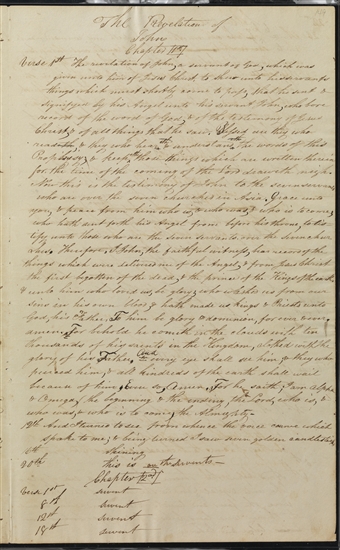 The Revelation of
John
Chapter 1st
Verse 1st The revelation of John, a servant of God, which was
given unto him of Jesus Christ to shew unto his servants
things which must shortly come to pass, that he sent &
signified by his Angel unto his servant John, who bore
record of the word of God, & of the testimony of Jesus
Christ, & of all things that he saw. Blessed are they who
readeth, & they who hear & understand the words of this
Prophecy, & keep those things which are written therein
for the time of the coming of the Lord draweth nigh.
Now this is the testimony of John to the seven servants
who are over the seven churches in Asia. Grace unto
you, & peace from him who is, & who was, & who is to come,
who hath sent forth his Angel from before his throne, to tes
tify unto those who are the seven servants over the seven chur
ches. Therefore, I John, the faithful witness, bear record of the
things which were delivered me of the Angel, & from Jesus Christ
the first begotten of the dead, & the prince of the Kings of the earth
& unto him who loved us, be glory, who washed us from our
sins in his own blood, & hath made us Kings & Priests unto
God his Father. To him be glory & dominion, for ever & ever
amen. For behold he cometh in the clouds with ten
thousands of his saints in the Kingdom, clothed with the
glory of his Father. And every eye shall see him, & they who
pierced him, & all kindreds of the earth shall wail
because of him, Even so, Amen. For he saith, I am alpha
& Omega, the beginning & the ending, the Lord, who is, &
who was, & who is to come, the Almighty.
12th And I turned to see from whence the voice came which
spake to me, & being turned I saw seven golden candlesticks
16th shining
20th this is the servants
Chapter 2nd
Verse 1st servent
8th servent
12th servent
18th servent